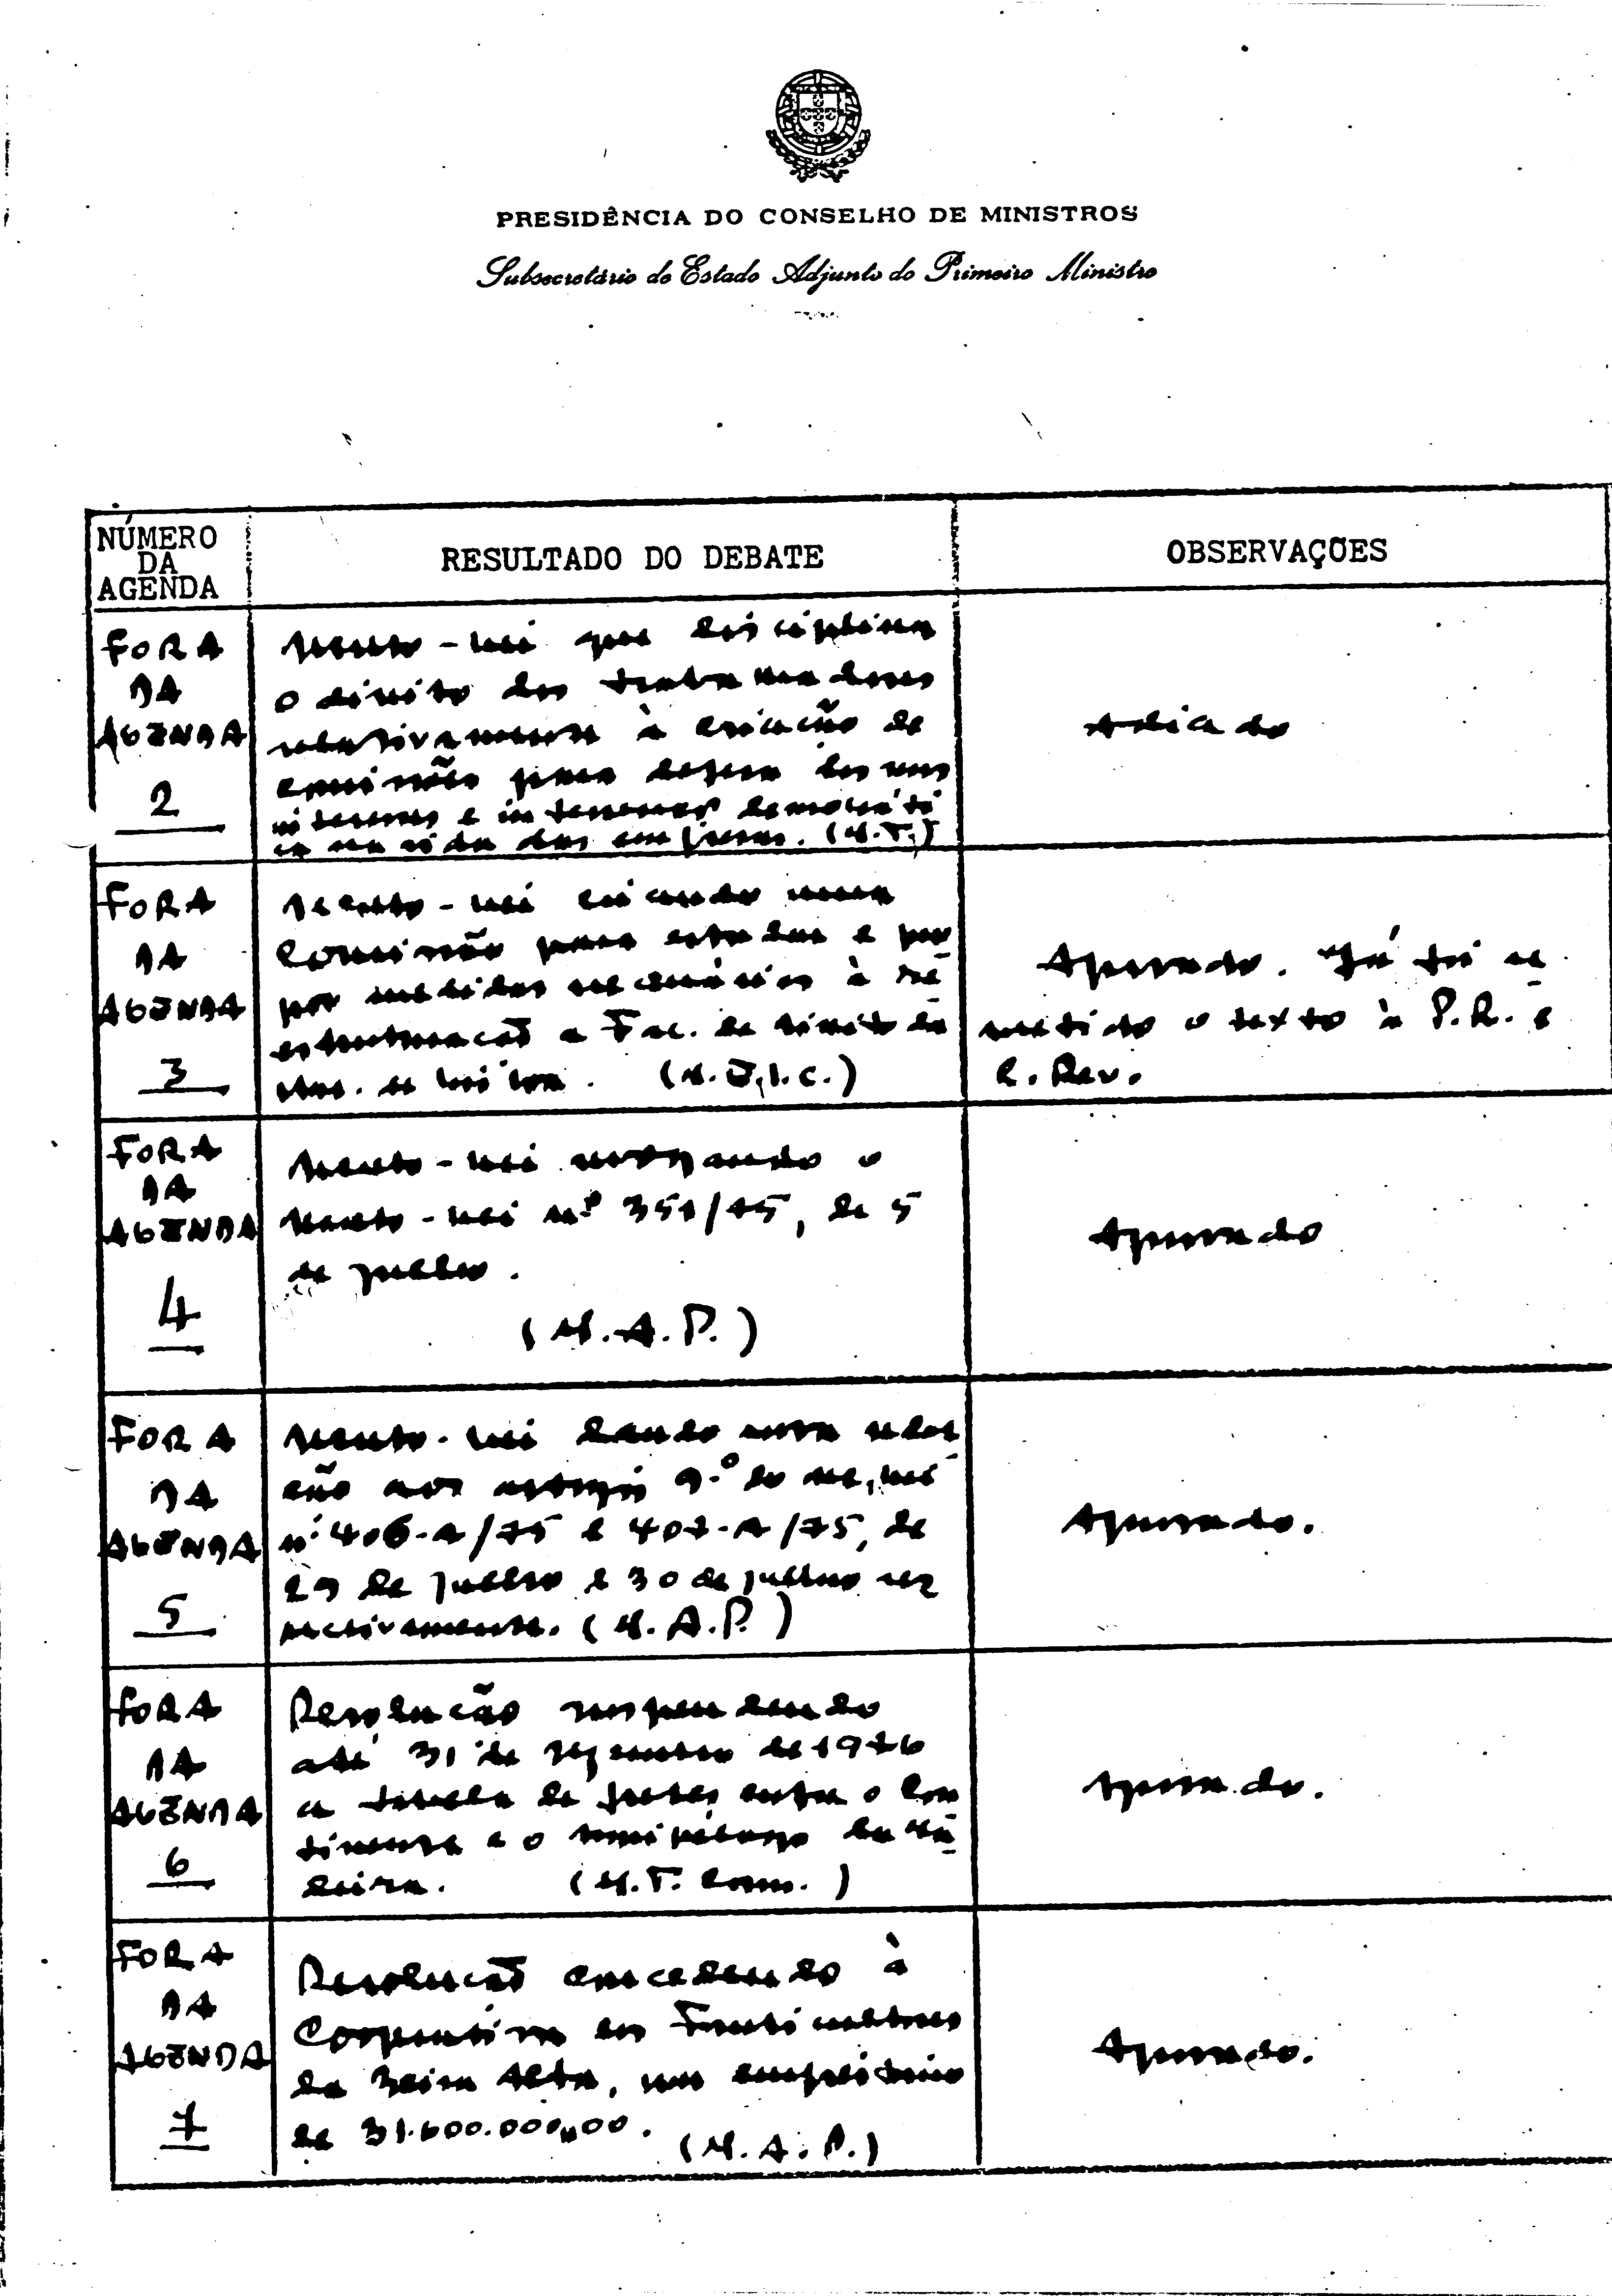 PRESIDÊNCIA DO CONSELHO DE MINISTROS
Subsecretário de Estado Adjunto do Primeiro Ministro
NÚMERO
DA
AGENDA
RESULTADO DO DEBATE
OBSERVAÇÕES
FORA
DA
AGENDA
2
Decreto-Lei que disciplina
o direito dos trabalhadores
relativamente à criação de
comissões para defesa dos seus
interesses e intervenção democráti
ca na vida das empresas. (M.T.)
Adiado
FORA
DA
AGENDA
3
Decreto-Lei criando uma
Comissão para estudar e pro
por medidas necessárias à re
estruturação a Fac. de Direito da
Un. de Lisboa. (M.E.I.C.)
Aprovado. Já foi re
metido o texto à P.R. e
C. Rev.
FORA
DA
AGENDA
4
Decreto-Lei revogando o
Decreto-Lei nº 351/75, de 5
de Julho.
(M.A.P.)
Aprovado
FORA
DA
AGENDA
5
Decreto-Lei dando nova redac
ção aos artigos 9.º do Dec. Lei
nº 406-A/75 e 407-A/75, de
29 de Julho e 30 de Julho res
pectivamente. (M.A.P.)
Aprovado.
FORA
DA
AGENDA
6
Resolução suspendendo
até 31 de Dezembro de 1976
a tabela de fretes entre o Con
tinente e o Arquipélago da Ma
deira. (M.T. Com.)
Aprovado.
FORA
DA
AGENDA
7
Resolução concedendo à
Cooperativa dos Fruticultores
da Beira Alta, um empréstimo
de 31.600.000$00.
(M.A.P.)
Aprovado.